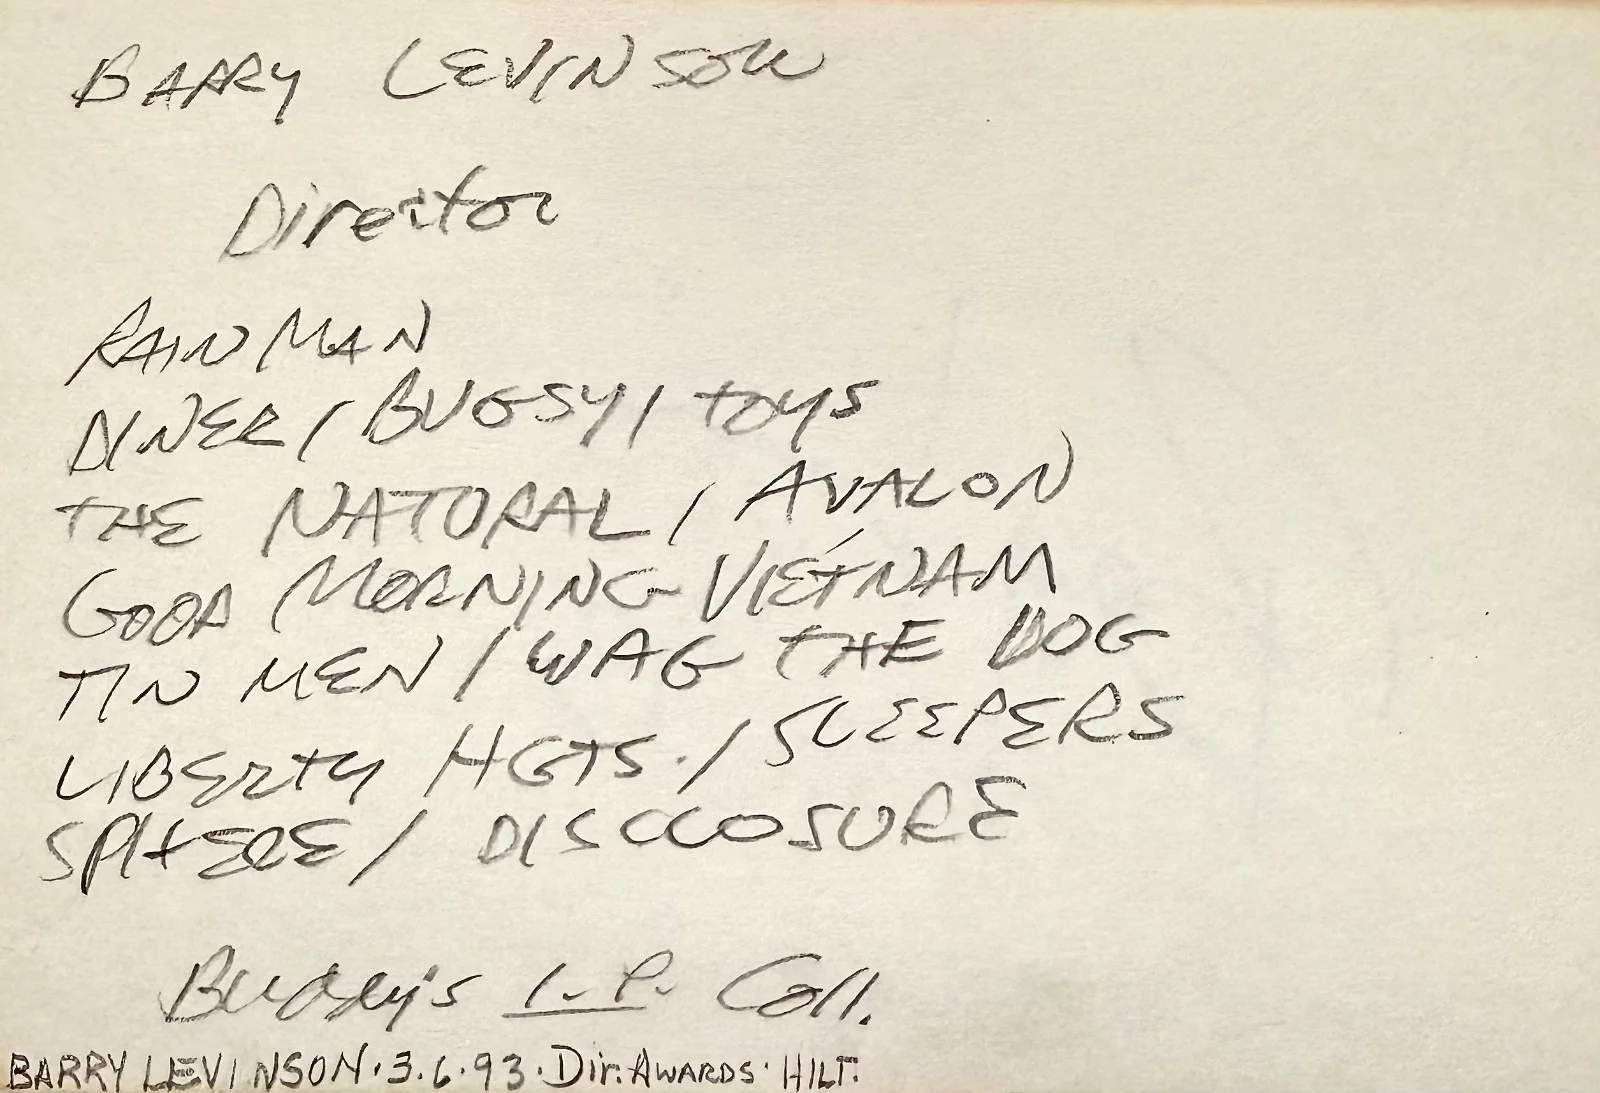 BARRY LEVINSON
Director
RAIN MAN
DINER / BUGSY / TOYS
THE NATURAL / AVALON
GOOD MORNING VIETNAM
TIN MEN / WAG THE DOG
LIBERTY HGTS. / SLEEPERS
SPHERE / DISCLOSURE
Buddy's I.P. Coll.
BARRY LEVINSON · 3.6.93 · Dir. AWARDS · HILT.